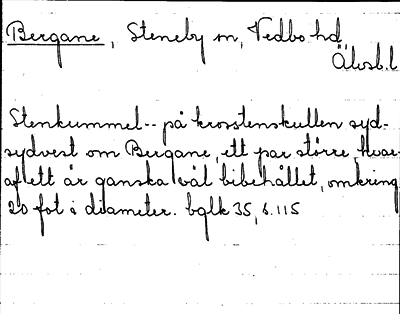 Bergane, Steneby sn, Vedbo hd,
Älvsb.l
Stenkummel-- på krosstenskullen syd-
sydvest om Bergane, ett par större, hvar-
af ett är ganska väl bibehållet, omkring
20 fot i diameter. bglk 35, s. 115